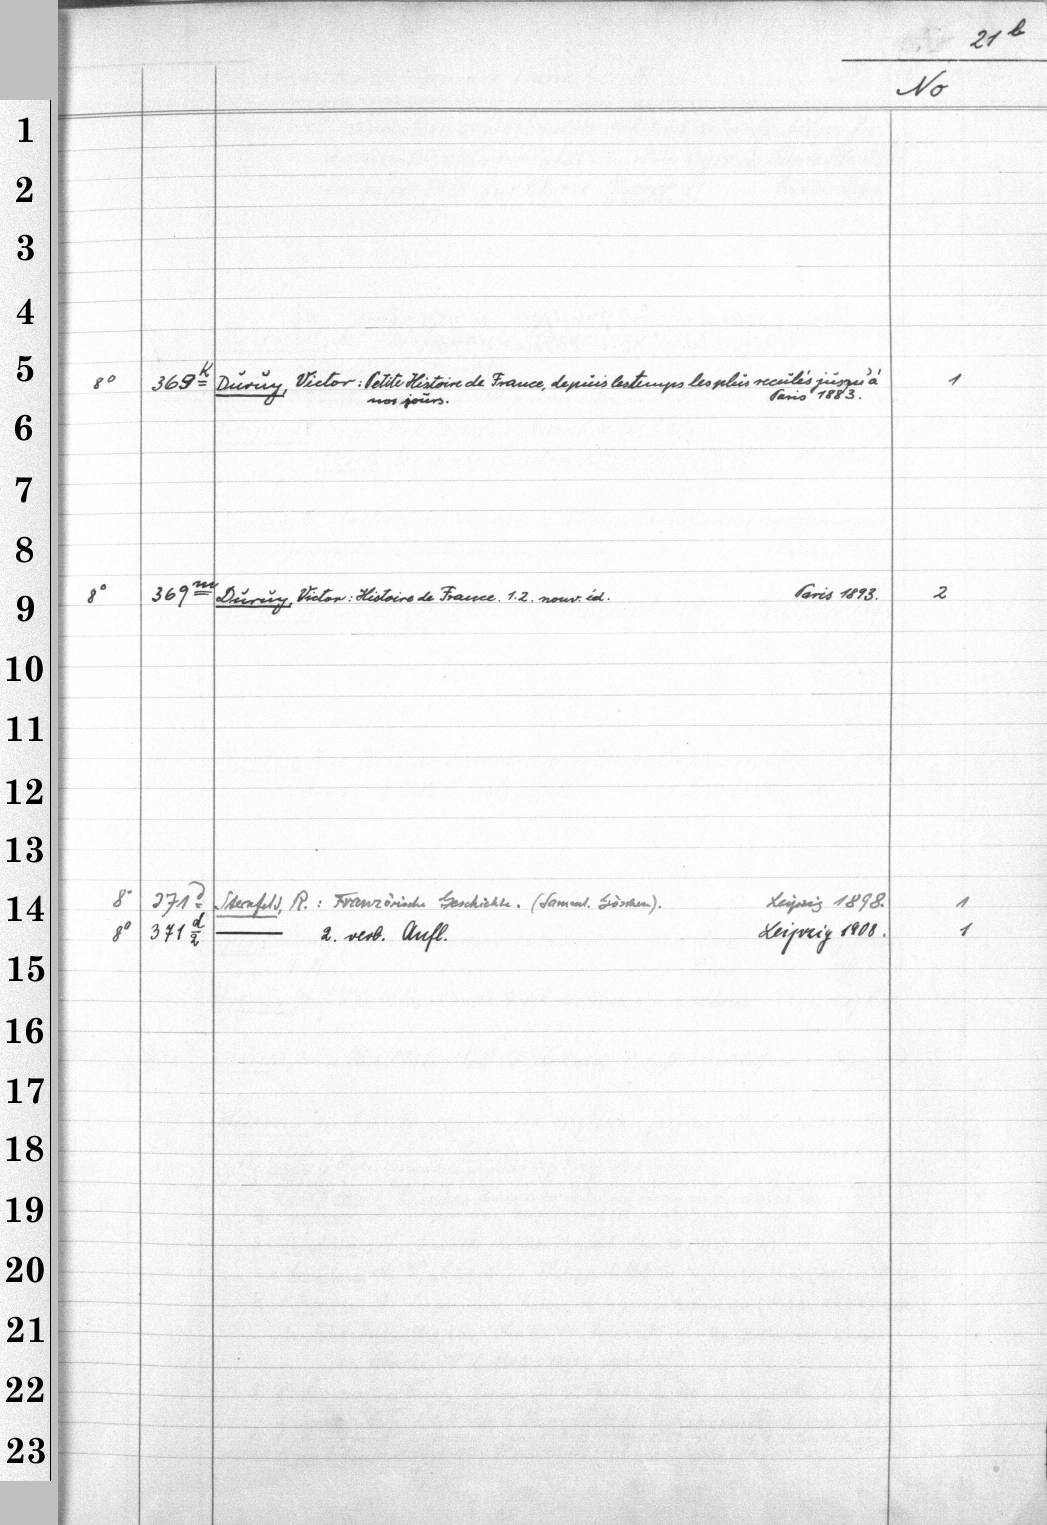 21 b
No
1
2
3
4
5
8° 369 k Dŭrŭy, Victor: Petite Histoire de France, depuis les temps les plus reculés jusqu'à 1
nos jours. Paris 1883.
6
7
8
8° 369 m Dŭrŭy, Victor: Histoire de France. 1.2. nouv. éd. Paris 1893. 2
9
10
11
12
13
14
8° 371 d Sternfeld, R.: Französische Geschichte. (Samml. Göschen). Leipzig 1898. 1
8° 371 d/2 —— 2. verb. Aufl. Leipzig 1908. 1
15
16
17
18
19
20
21
22
23